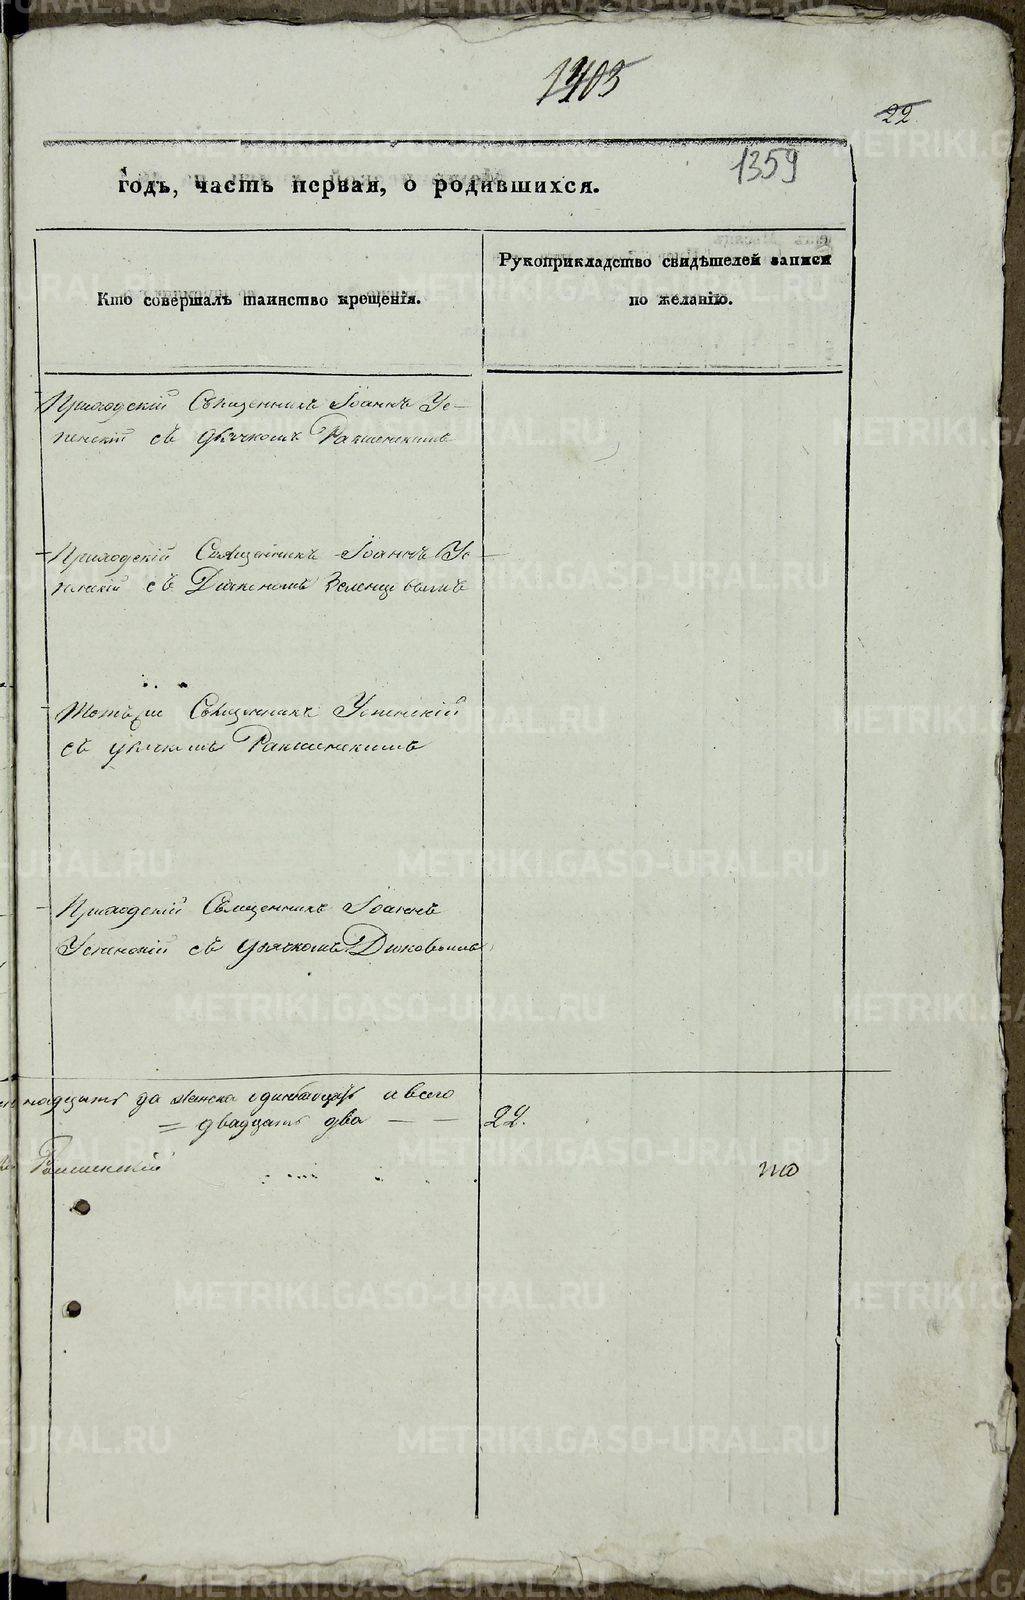 1403
22.
1359
годъ, часть первая, о родившихся.
Кто совершалъ таинство крещенія.
Рукоприкладство свидѣтелей записи
по желанію.
Приходскій Священникъ Іоаннъ Ус-
пенскій съ дьячкомъ
Приходскій Священникъ Іоаннъ Ус-
пенскій съ Діякономъ
Священникъ Успенскій
съ дьячкомъ
Приходскій Священникъ Іоаннъ
Успенскій съ дьячкомъ
надцать да женска одинатцать а всего
= двадцать два — — 22.
METRIKI.GASO-URAL.RU